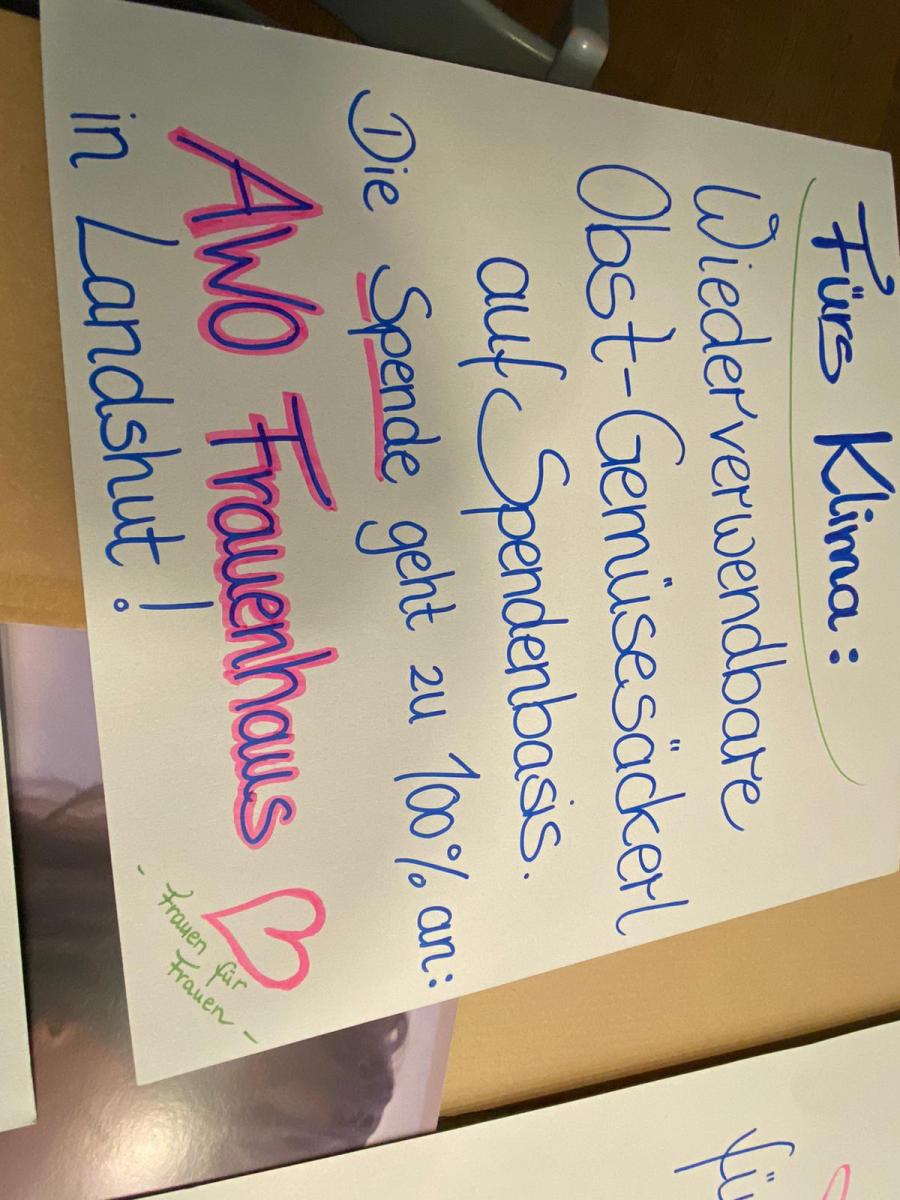 Fürs Klima:
Wiederverwendbare
Obst-Gemüsesäckerl
auf Spendenbasis.
Die Spende geht zu 100% an:
AWO Frauenhaus
in Landshut!
- Frauen für
Frauen -
fü